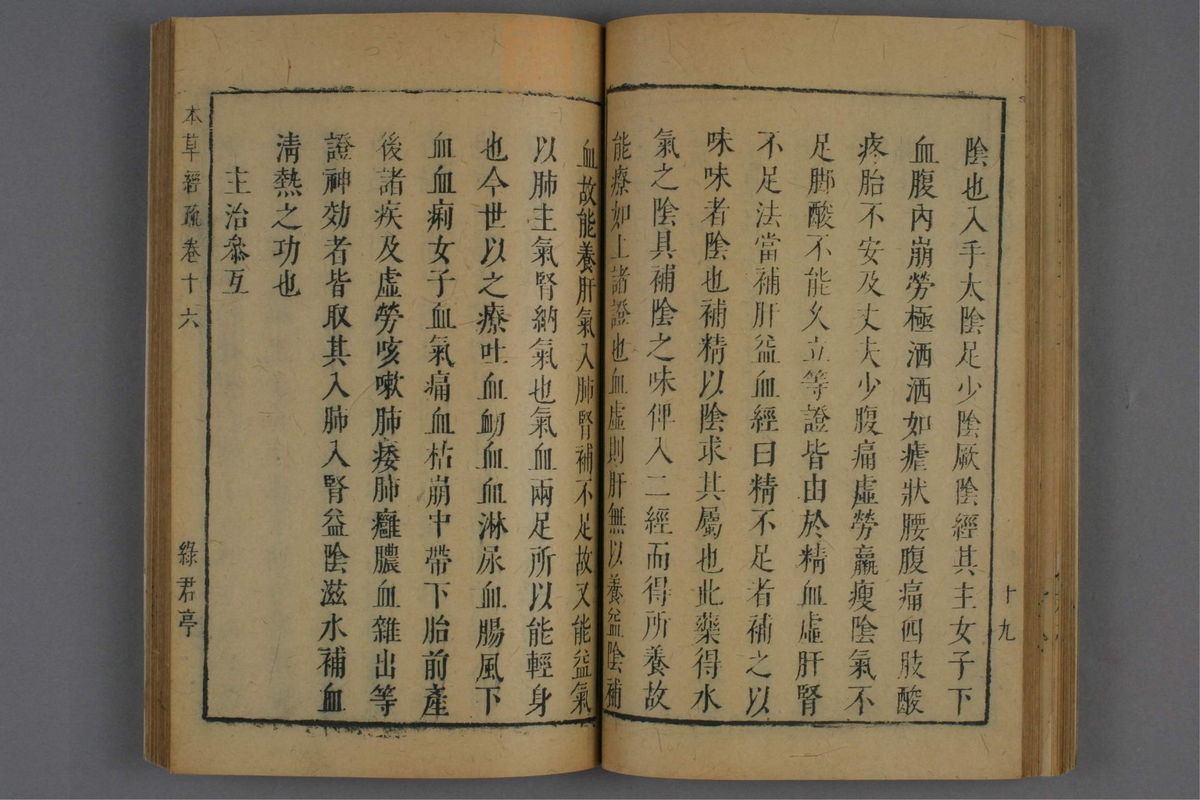 陰也入手太陰足少陰厥陰經其主女子下
血腹內崩勞極洒洒如瘧狀腰腹痛四肢酸
疼胎不安及丈夫少腹痛虛勞羸瘦陰氣不
足腳酸不能久立等證皆由於精血虛肝腎
不足法當補肝益血經曰精不足者補之以
味味者陰也補精以陰求其屬也此藥得水
氣之陰具補陰之味俾入二經而得所養故
能療如上諸證也血虛則肝無以養益陰補
血故能養肝氣入肺腎補不足故又能益氣
以肺主氣腎納氣也氣血兩足所以能輕身
也今世以之療吐血衂血血淋尿血腸風下
血血痢女子血氣痛血枯崩中帶下胎前產
後諸疾及虛勞咳嗽肺痿肺癰膿血雜出等
證神効者皆取其入肺入腎益陰滋水補血
淸熱之功也
主治叅互
十九
本草經疏卷十六
綠君亭